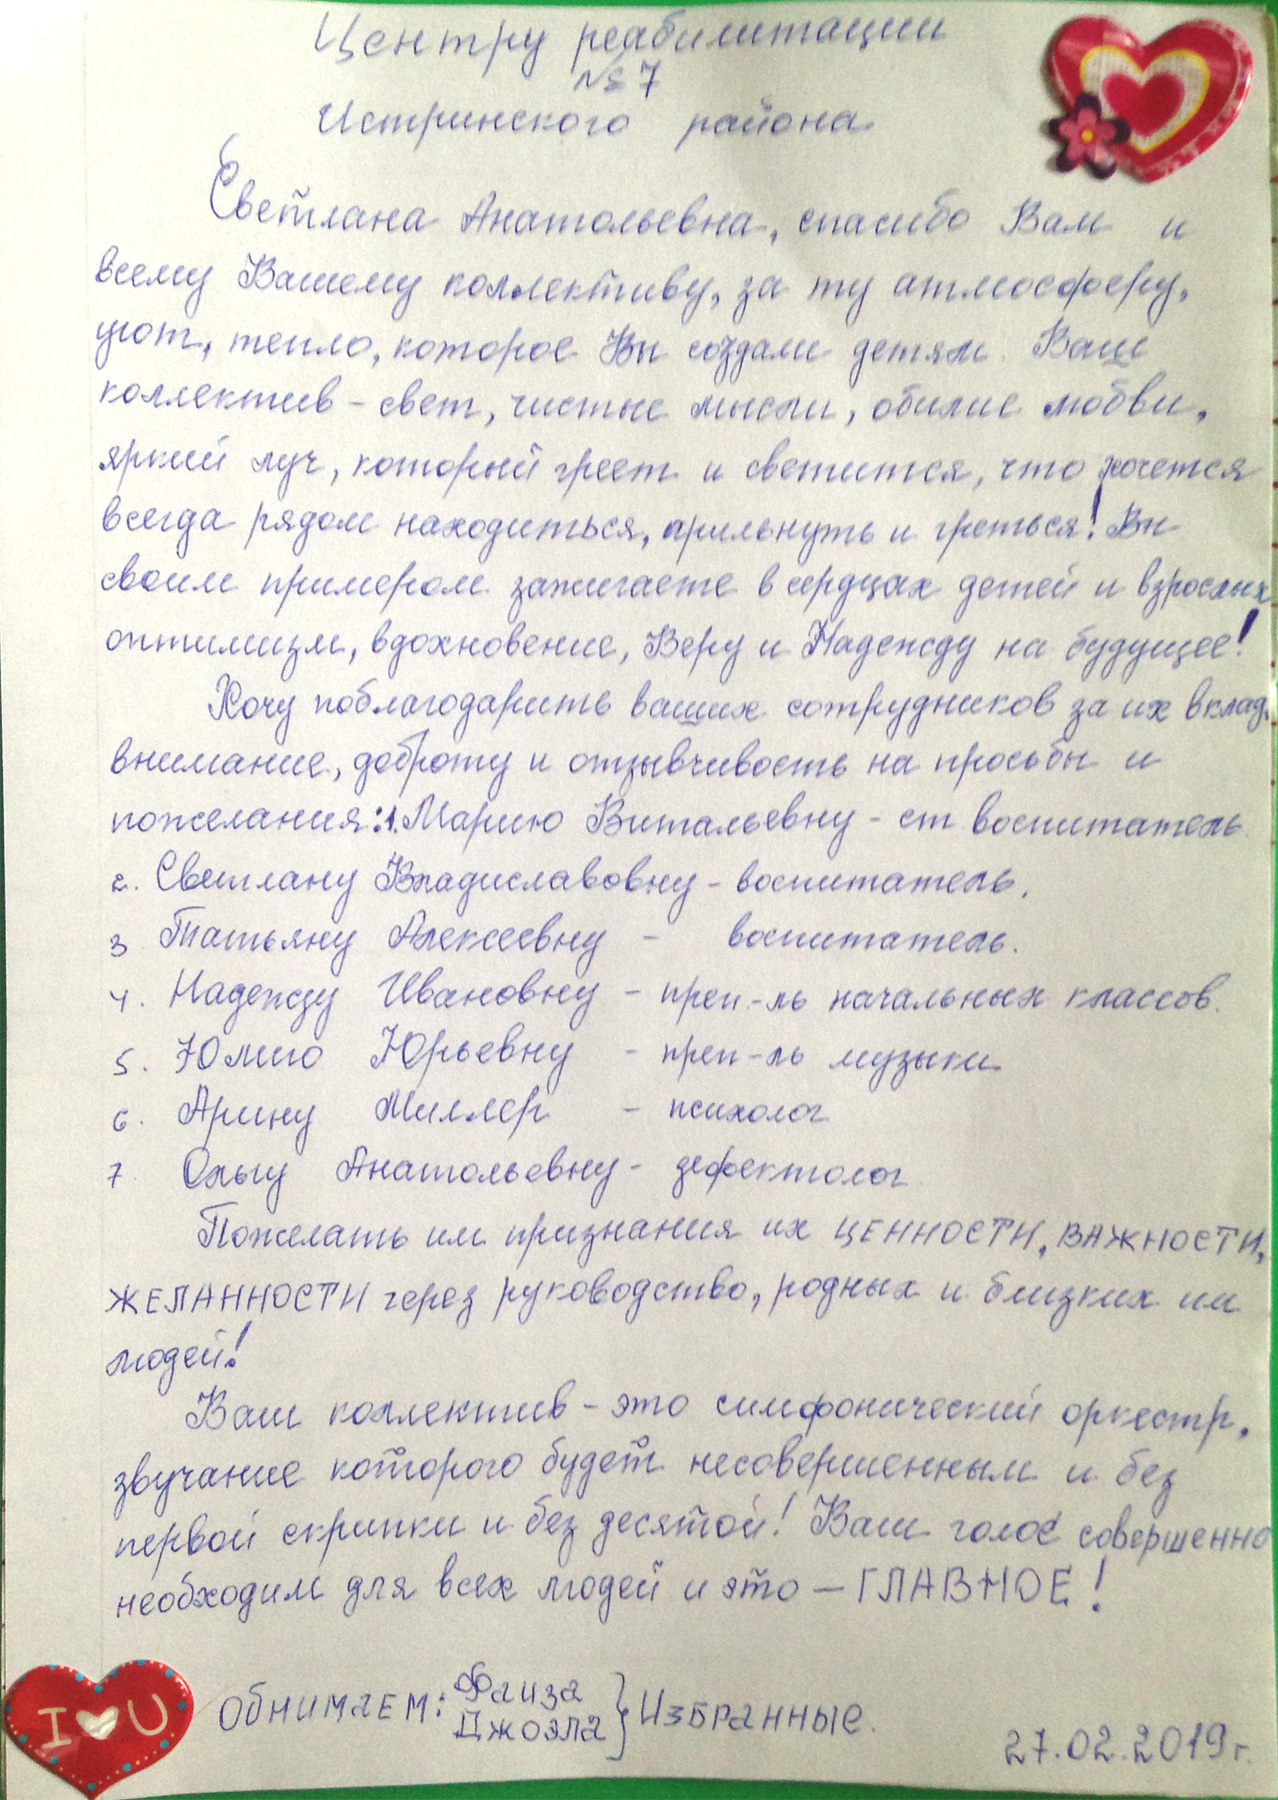 Центру реабилитации
№ 7
Истринского района
Светлана Анатольевна, спасибо Вам и
всему Вашему коллективу, за ту атмосферу,
уют, тепло, которое Вы создали детям. Ваш
коллектив – свет, чистые мысли, обилие любви,
яркий луч, который греет и светится, что хочется
всегда рядом находиться, прильнуть и греться! Вы
своим примером зажигаете в сердцах детей и взрослых
оптимизм, вдохновение, Веру и Надежду на будущее!
Хочу поблагодарить ваших сотрудников за их вклад,
внимание, доброту и отзывчивость на просьбы и
пожелания: 1. Марию Витальевну – ст воспитатель
2. Светлану Владиславовну – воспитатель.
3 Татьяну Алексеевну – воспитатель.
4. Надежду Ивановну – преп.-ль начальных классов.
5. Юлию Юрьевну – преп-ль музыки
6. Арину Миллер – психолог
7. Ольгу Анатольевну – дефектолог
Пожелать им признания их ЦЕННОСТИ, ВАЖНОСТИ,
ЖЕЛАННОСТИ через руководство, родных и близких им
людей!
Ваш коллектив – это симфонический оркестр,
звучание которого будет несовершенным и без
первой скрипки и без десятой! Ваш голос совершенно
необходим для всех людей и это – ГЛАВНОЕ!
ОБНИМАЕМ: Фаиза
Джоэла } ИЗБРАННЫЕ.
27.02.2019 г.
I U